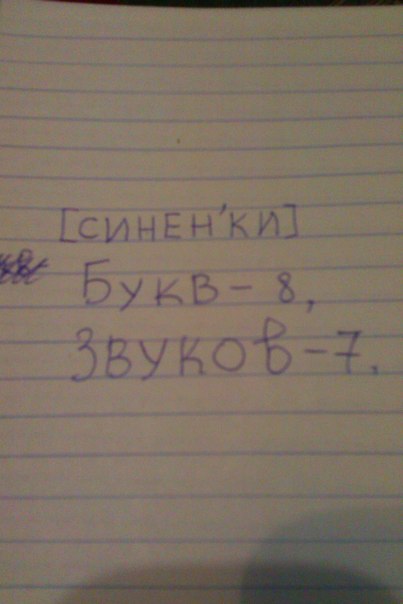 [СИНЕН'КИ]
БУКВ - 8,
ЗВУКОВ - 7.